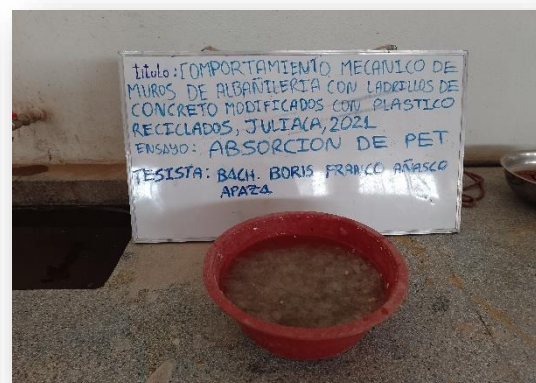 titulo: COMPORTAMIENTO MECANICO DE
MUROS DE ALBAÑILERIA CON LADRILLOS DE
CONCRETO MODIFICADOS CON PLASTICO
RECICLADOS, JULIACA, 2021
ENSAYO: ABSORCION DE PET
TESISTA: BACH. BORIS FRANCO AÑASCO
APAZA